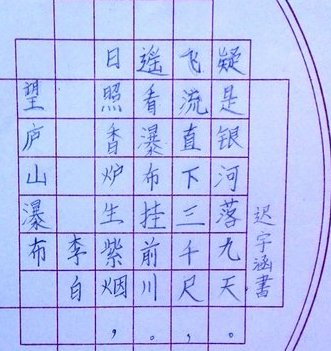 望庐山瀑布
李白
日照香炉生紫烟，
遥看瀑布挂前川。
飞流直下三千尺，
疑是银河落九天。
迟宇涵書